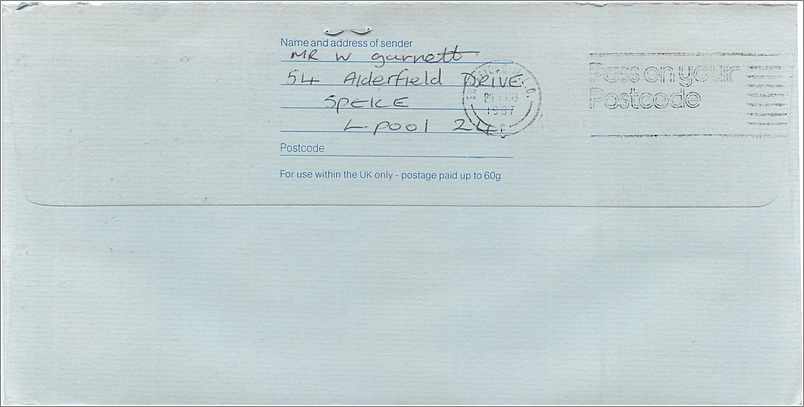 Name and address of sender
MR W garnett
54 Alderfield DRIVE
SPEKE
L-pool 24
1987
Pass on your
Postcode
Postcode
For use within the UK only - postage paid up to 60g